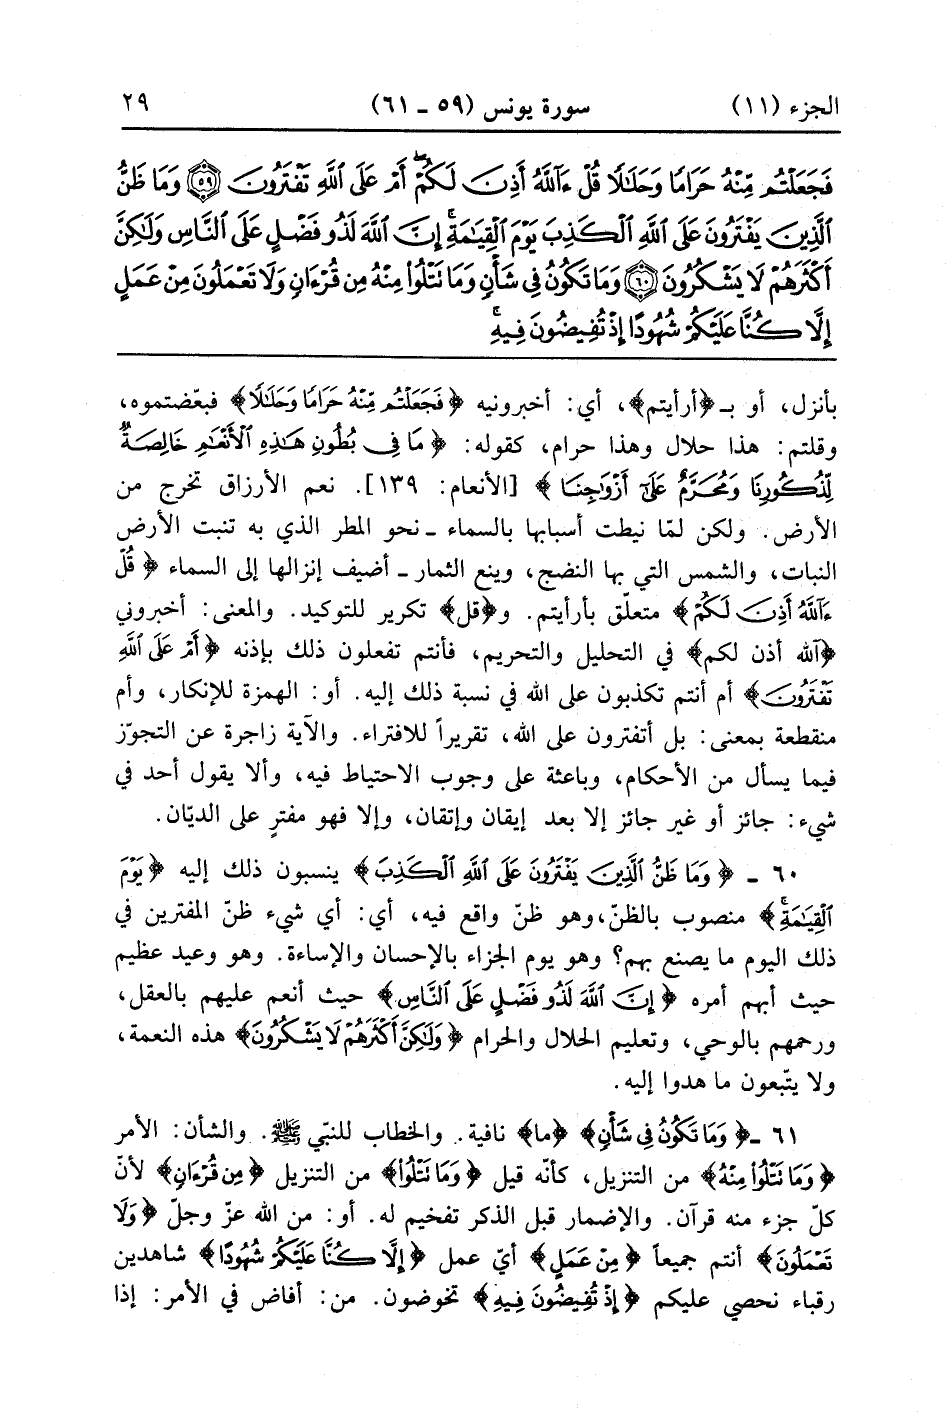 الجزء (١١) سورة يونس (٥٩ ـ ٦١) ٢٩
فَجَعَلْتُم مِّنْهُ حَرَامًا وَحَلَٰلًا قُلْ ءَآللَّهُ أَذِنَ لَكُمْ ۖ أَمْ عَلَى ٱللَّهِ تَفْتَرُونَ ۝٥٩ وَمَا ظَنُّ
ٱلَّذِينَ يَفْتَرُونَ عَلَى ٱللَّهِ ٱلْكَذِبَ يَوْمَ ٱلْقِيَٰمَةِ ۗ إِنَّ ٱللَّهَ لَذُو فَضْلٍ عَلَى ٱلنَّاسِ وَلَٰكِنَّ
أَكْثَرَهُمْ لَا يَشْكُرُونَ ۝٦٠ وَمَا تَكُونُ فِى شَأْنٍ وَمَا تَتْلُوا۟ مِنْهُ مِن قُرْءَانٍ وَلَا تَعْمَلُونَ مِنْ عَمَلٍ
إِلَّا كُنَّا عَلَيْكُمْ شُهُودًا إِذْ تُفِيضُونَ فِيهِ ۚ
بأنزل، أو بـ ﴿أرأيتم﴾، أي: أخبرونيه ﴿فَجَعَلْتُم مِّنْهُ حَرَامًا وَحَلَٰلًا﴾ فبعّضتموه،
وقلتم: هذا حلال وهذا حرام، كقوله: ﴿ مَا فِى بُطُونِ هَٰذِهِ ٱلْأَنْعَٰمِ خَالِصَةٌ
لِّذُكُورِنَا وَمُحَرَّمٌ عَلَىٰٓ أَزْوَٰجِنَا ﴾ [الأنعام: ١٣٩]. نعم الأرزاق تخرج من
الأرض. ولكن لمّا نيطت أسبابها بالسماء ـ نحو المطر الذي به تنبت الأرض
النبات، والشمس التي بها النضج، وينع الثمار ـ أضيف إنزالها إلى السماء ﴿ قُلْ
ءَآللَّهُ أَذِنَ لَكُمْ﴾ متعلّق بأرأيتم. و﴿قل﴾ تكرير للتوكيد. والمعنى: أخبروني
﴿آلله أذن لكم﴾ في التحليل والتحريم، فأنتم تفعلون ذلك بإذنه ﴿أَمْ عَلَى ٱللَّهِ
تَفْتَرُونَ﴾ أم أنتم تكذبون على الله في نسبة ذلك إليه. أو: الهمزة للإنكار، وأم
منقطعة بمعنى: بل أتفترون على الله، تقريراً للافتراء. والآية زاجرة عن التجوّز
فيما يسأل من الأحكام، وباعثة على وجوب الاحتياط فيه، وألا يقول أحد في
شيء: جائز أو غير جائز إلا بعد إيقان وإتقان، وإلا فهو مفترٍ على الديّان.
٦٠ ـ ﴿ وَمَا ظَنُّ ٱلَّذِينَ يَفْتَرُونَ عَلَى ٱللَّهِ ٱلْكَذِبَ ﴾ ينسبون ذلك إليه ﴿يَوْمَ
ٱلْقِيَٰمَةِ ۗ﴾ منصوب بالظنّ، وهو ظنّ واقع فيه، أي: أي شيء ظنّ المفترين في
ذلك اليوم ما يصنع بهم؟ وهو يوم الجزاء بالإحسان والإساءة. وهو وعيد عظيم
حيث أبهم أمره ﴿ إِنَّ ٱللَّهَ لَذُو فَضْلٍ عَلَى ٱلنَّاسِ﴾ حيث أنعم عليهم بالعقل،
ورحمهم بالوحي، وتعليم الحلال والحرام ﴿وَلَٰكِنَّ أَكْثَرَهُمْ لَا يَشْكُرُونَ﴾ هذه النعمة،
ولا يتّبعون ما هدوا إليه.
٦١ ـ ﴿ وَمَا تَكُونُ فِى شَأْنٍ﴾ ﴿ما﴾ نافية. والخطاب للنبّي ﷺ. والشأن: الأمر
﴿وَمَا تَتْلُوا۟ مِنْهُ﴾ من التنزيل، كأنّه قيل ﴿وَمَا تَتْلُوا۟﴾ من التنزيل ﴿مِن قُرْءَانٍ﴾ لأنّ
كلّ جزء منه قرآن. والإضمار قبل الذكر تفخيم له. أو: من الله عزّ وجلّ ﴿وَلَا
تَعْمَلُونَ﴾ أنتم جميعاً ﴿مِنْ عَمَلٍ﴾ أيّ عمل ﴿إِلَّا كُنَّا عَلَيْكُمْ شُهُودًا﴾ شاهدين
رقباء نحصي عليكم ﴿إِذْ تُفِيضُونَ فِيهِ﴾ تخوضون. من: أفاض في الأمر: إذا